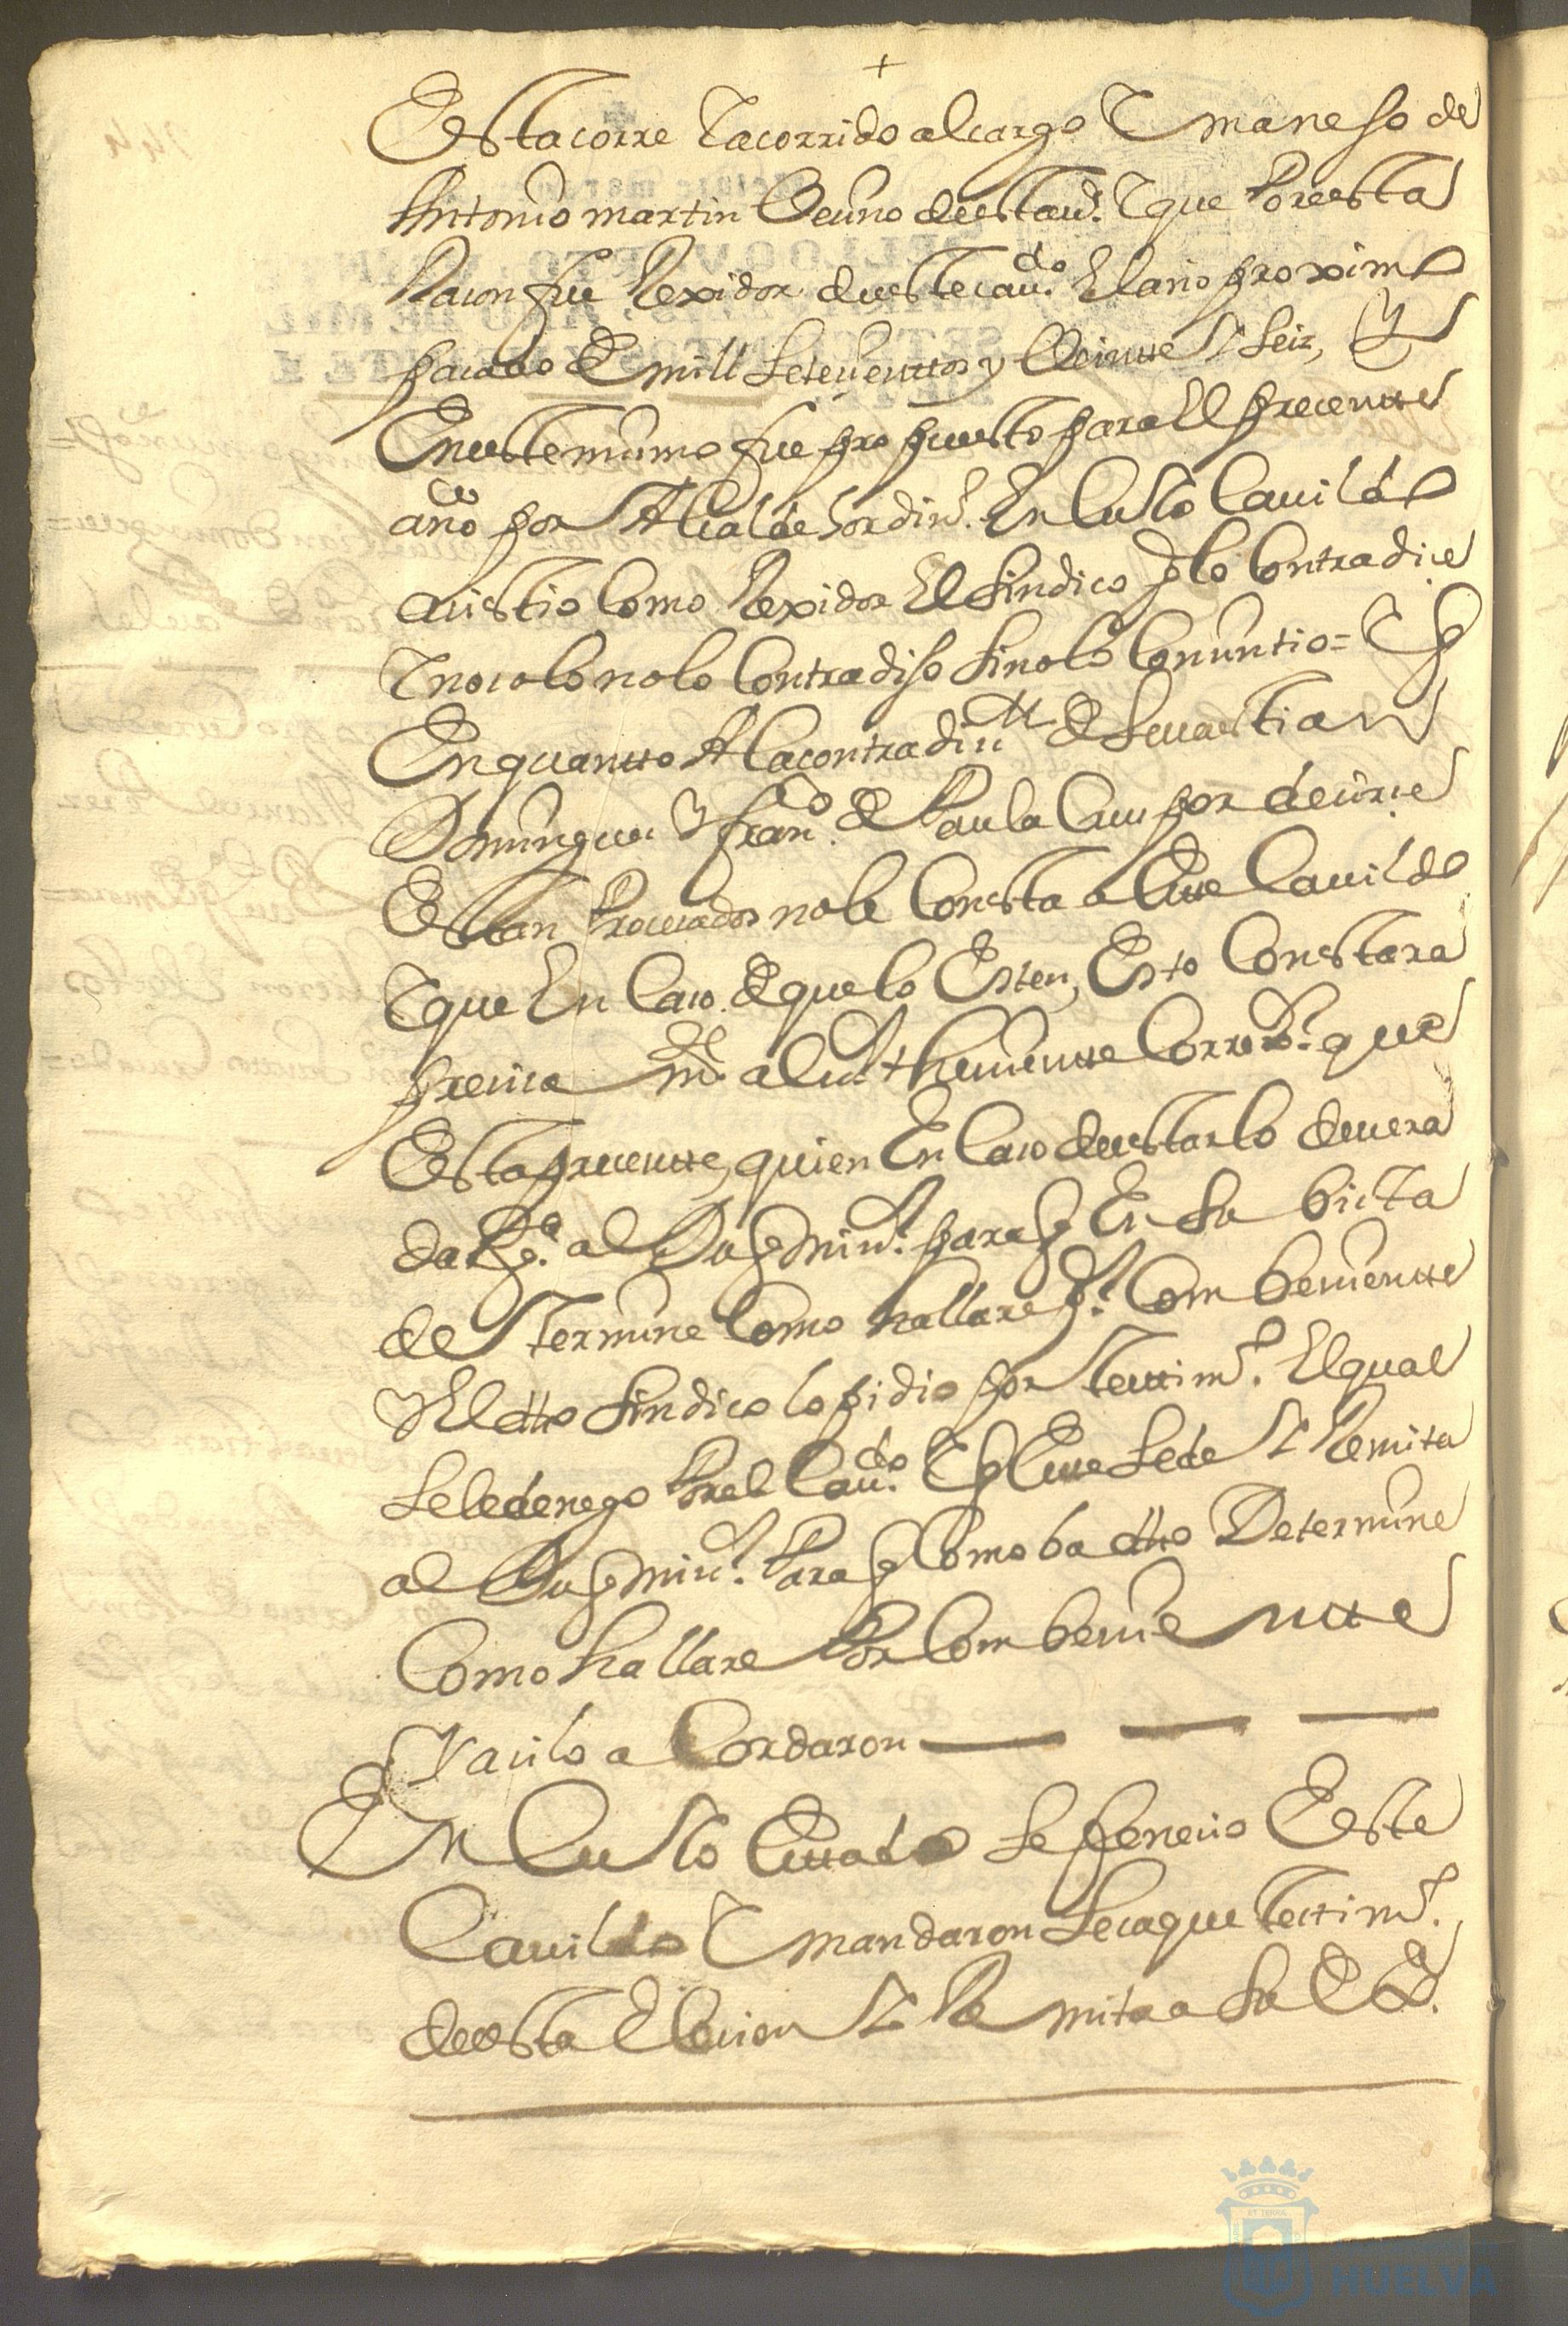 +
Esta corre Y a corrido al cargo Y maneso de
Antonio martin Veᵢno de esta uᵈ. Y que Por esta
Racon fue Rexidor de este cauᵈᵒ. El año proximo
pacado de mill Setecienttos y Veintte Y Seiz, Y
En este mismo fue propuesto para El precentte
año por Alcalde hordinᵒ. En Cuio Cauildo
acistio Como Rexidor El Sindico q lo Contradice
Y no solo no lo Contradiso Sino lo Concintio = Y q
En quantto A la contradiⁿ de Seuastian
Domingues Y franᶜᵒ. de Paula Cruz por decirse
Estan Procecados no le Consta a Este Cauildo
Y que En Caso de que lo Esten, Esto Constara
precisamᵗᵉ al sʳ thenientte Correxᵒʳ. que
Esta precentte, quien En Caso de estarlo deuera
dar qᵗᵃ. al Duq mi sʳ. para q En Su bista
determine Como hallare pʳ Combenientte
Y El dho Sindico lo pidio por testtimᵒ. El qual
Se le denego Por el Cauᵈᵒ. Y q Este Se de Y Remita
al Duq mi sʳ. Para q Como ba dho Determine
Como hallare Por Combenientte
Y aci lo a Cordaron
En Cuio Esttado Se fenecio Este
Cauildo Y mandaron Se saque testtimᵒ.
de esta Elecion Y Remita a Su Exᵃ.
HUELVA